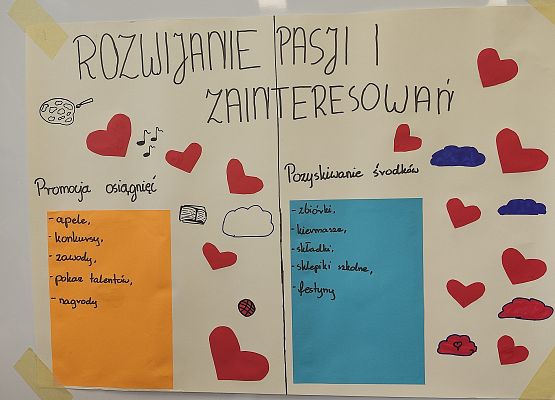 ROZWIJANIE PASJI I
ZAINTERESOWAŃ
Promocja osiągnięć
- apele,
- konkursy,
- zawody,
- pokaz talentów,
- nagrody
Pozyskiwanie środków
- zbiórki,
- kiermasze,
- składki,
- sklepiki szkolne,
- festyny